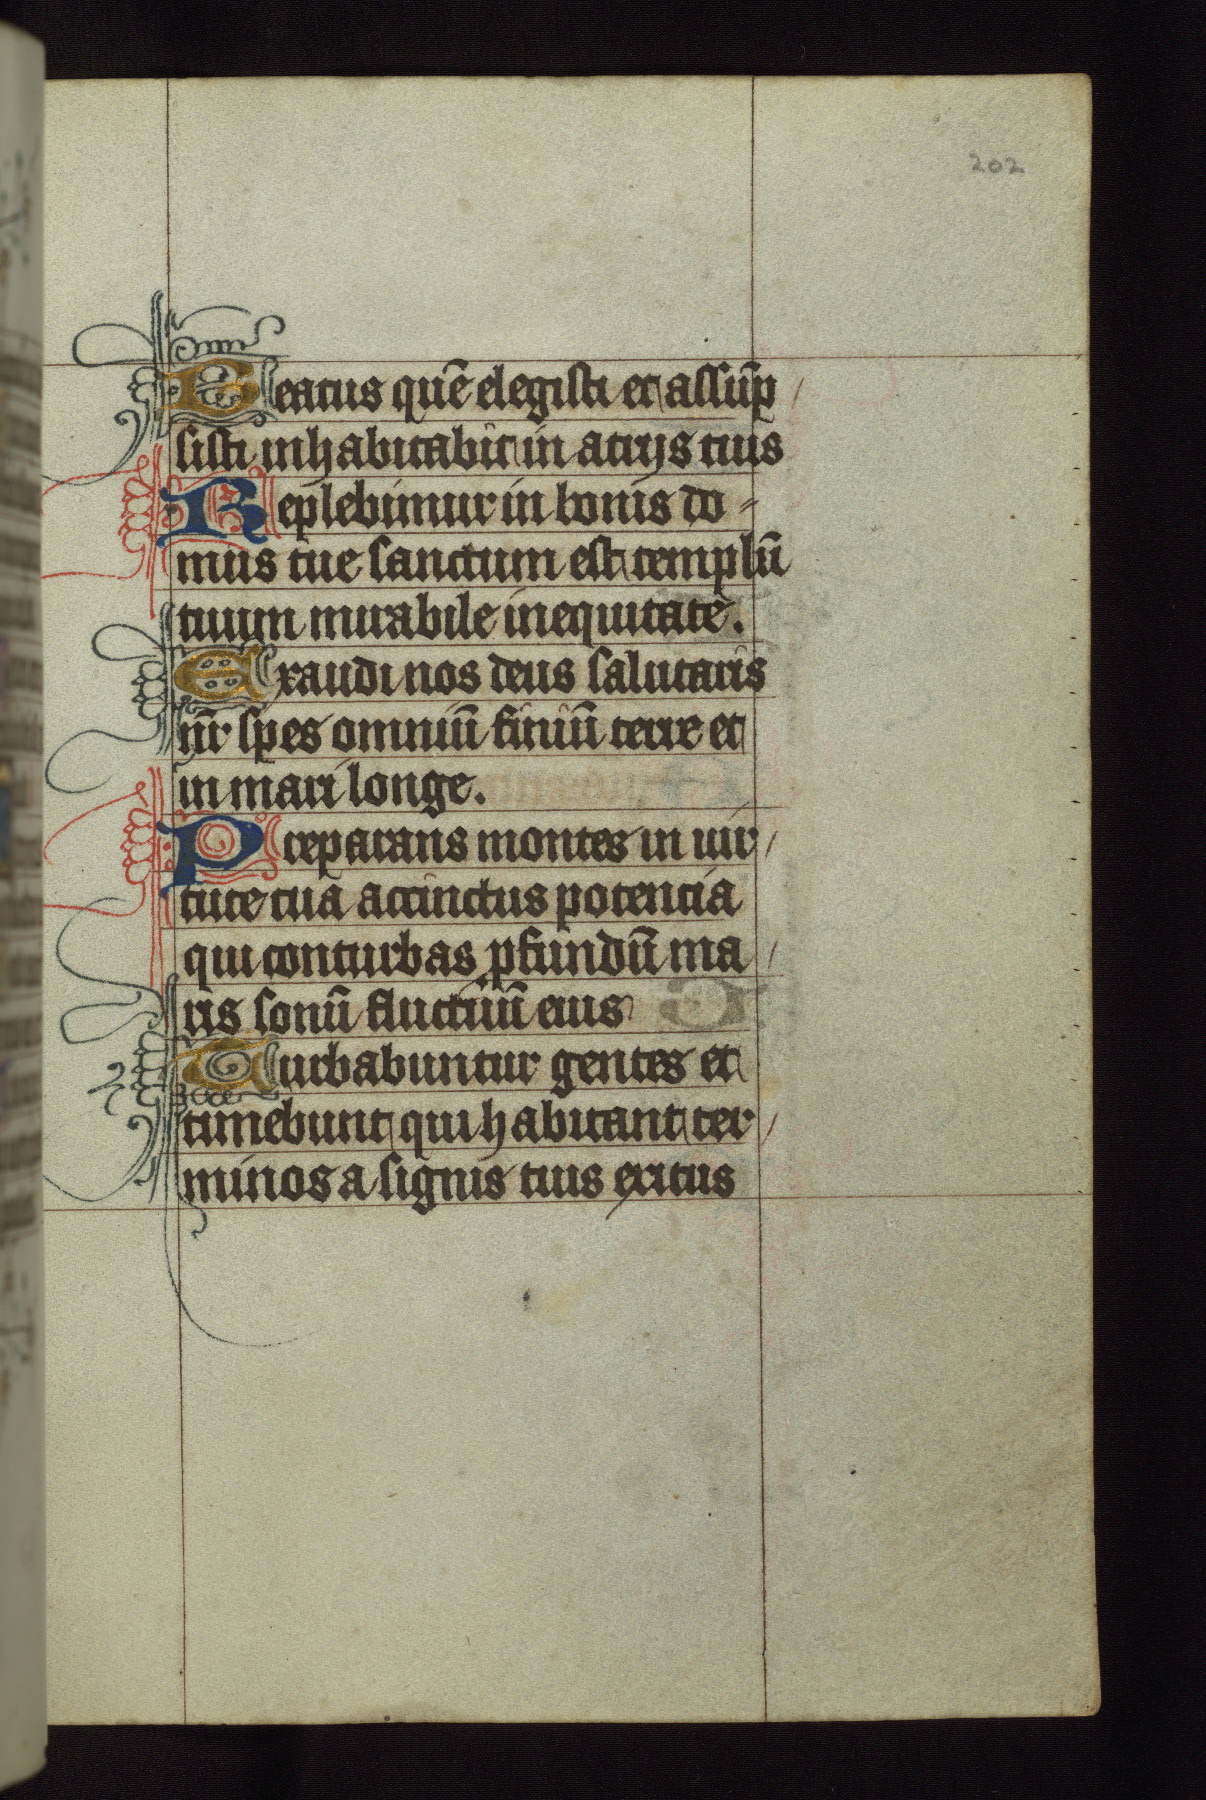 202
Beatus quē elegisti et assūp
sisti inhabitabit in atrijs tuis
Replebimur in bonis do
mus tue sanctum est templū
tuum mirabile in equitate.
Exaudi nos deus salutaris
nr̄ spes omniū finiū terre et
in mari longe.
Preparans montes in uir
tute tua accinctus potencia
qui conturbas ꝓfundū ma
ris sonū fluctuū eius
Turbabuntur gentes et
timebunt qui habitant ter
minos a signis tuis exitus